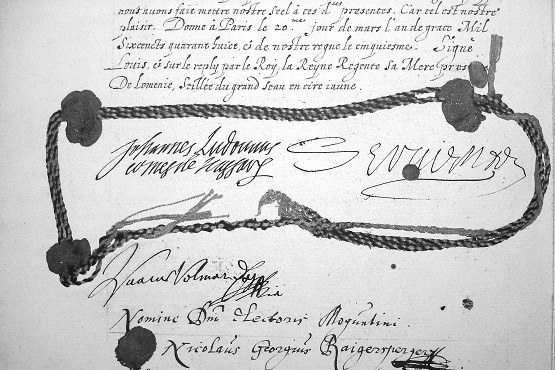 nous avons fait mettre nostre seel à ces d.tes presentes. Car cel est nostre
plaisir. Donne à Paris le 20.me jour de mars l'an de grace Mil
Sixcents quarant huict, & de nostre regne le cinquiesme. Signé
Louis, & sur le reply par le Roy, la Reyne Regente sa Mere
De Lomenie, Seillée du grand seau en cire iaune.
Johannes Ludovicus
comes de Nassau
Servien
Isaacus Volmar
Nomine Dni Electoris Moguntini.
Nicolaus Georgius Raigersperger